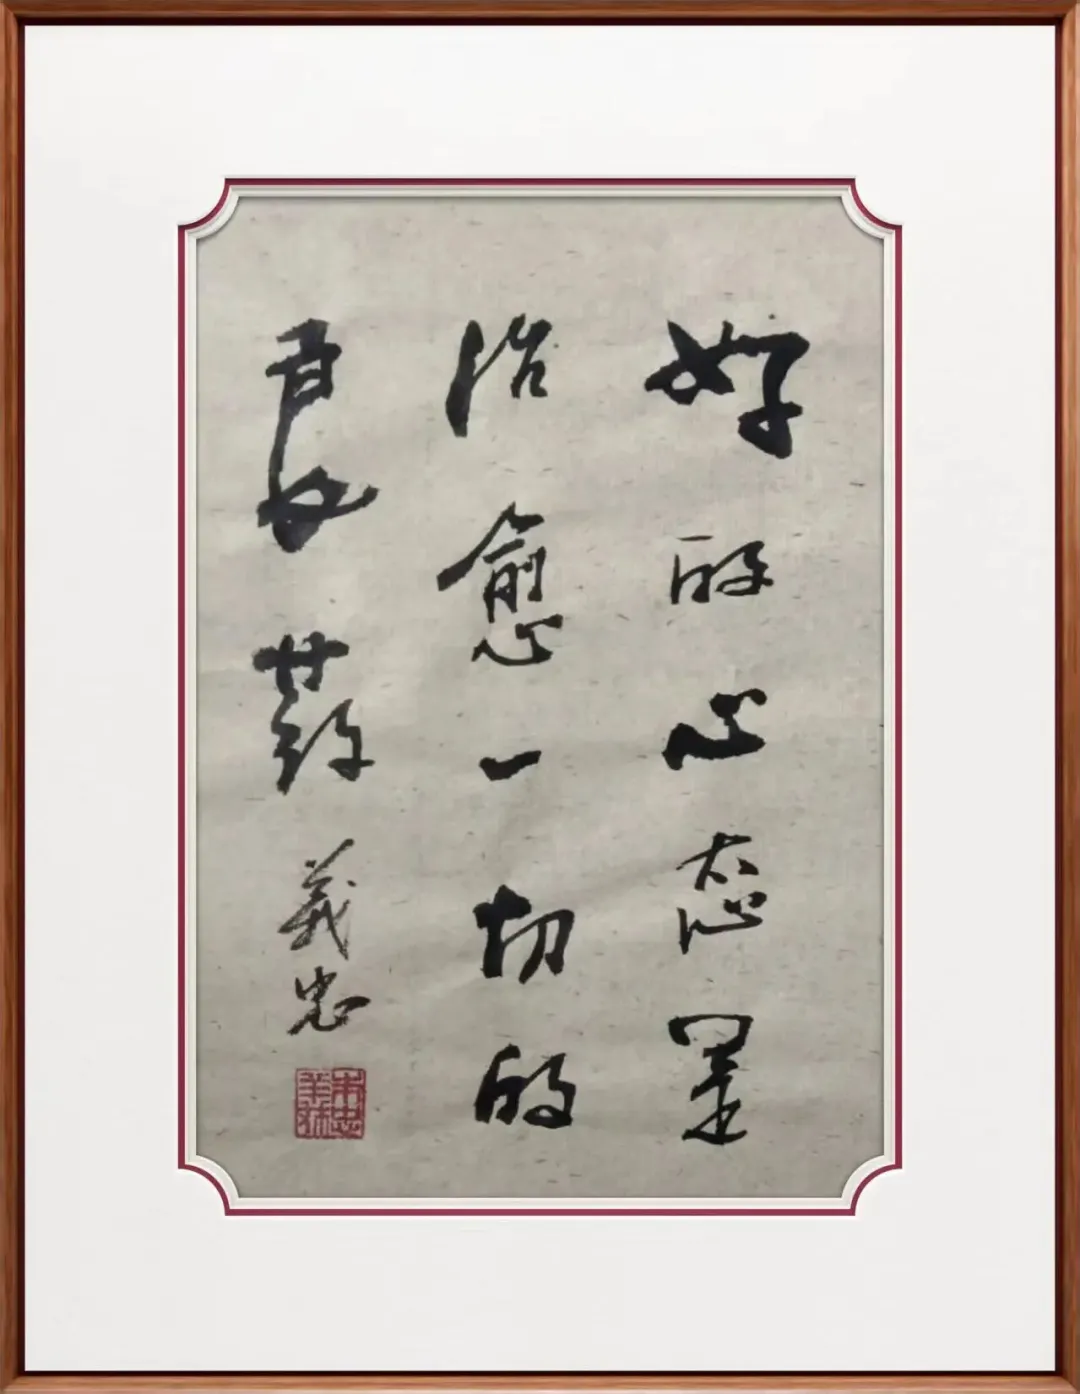 好的心态是
治愈一切的
良药 義忠